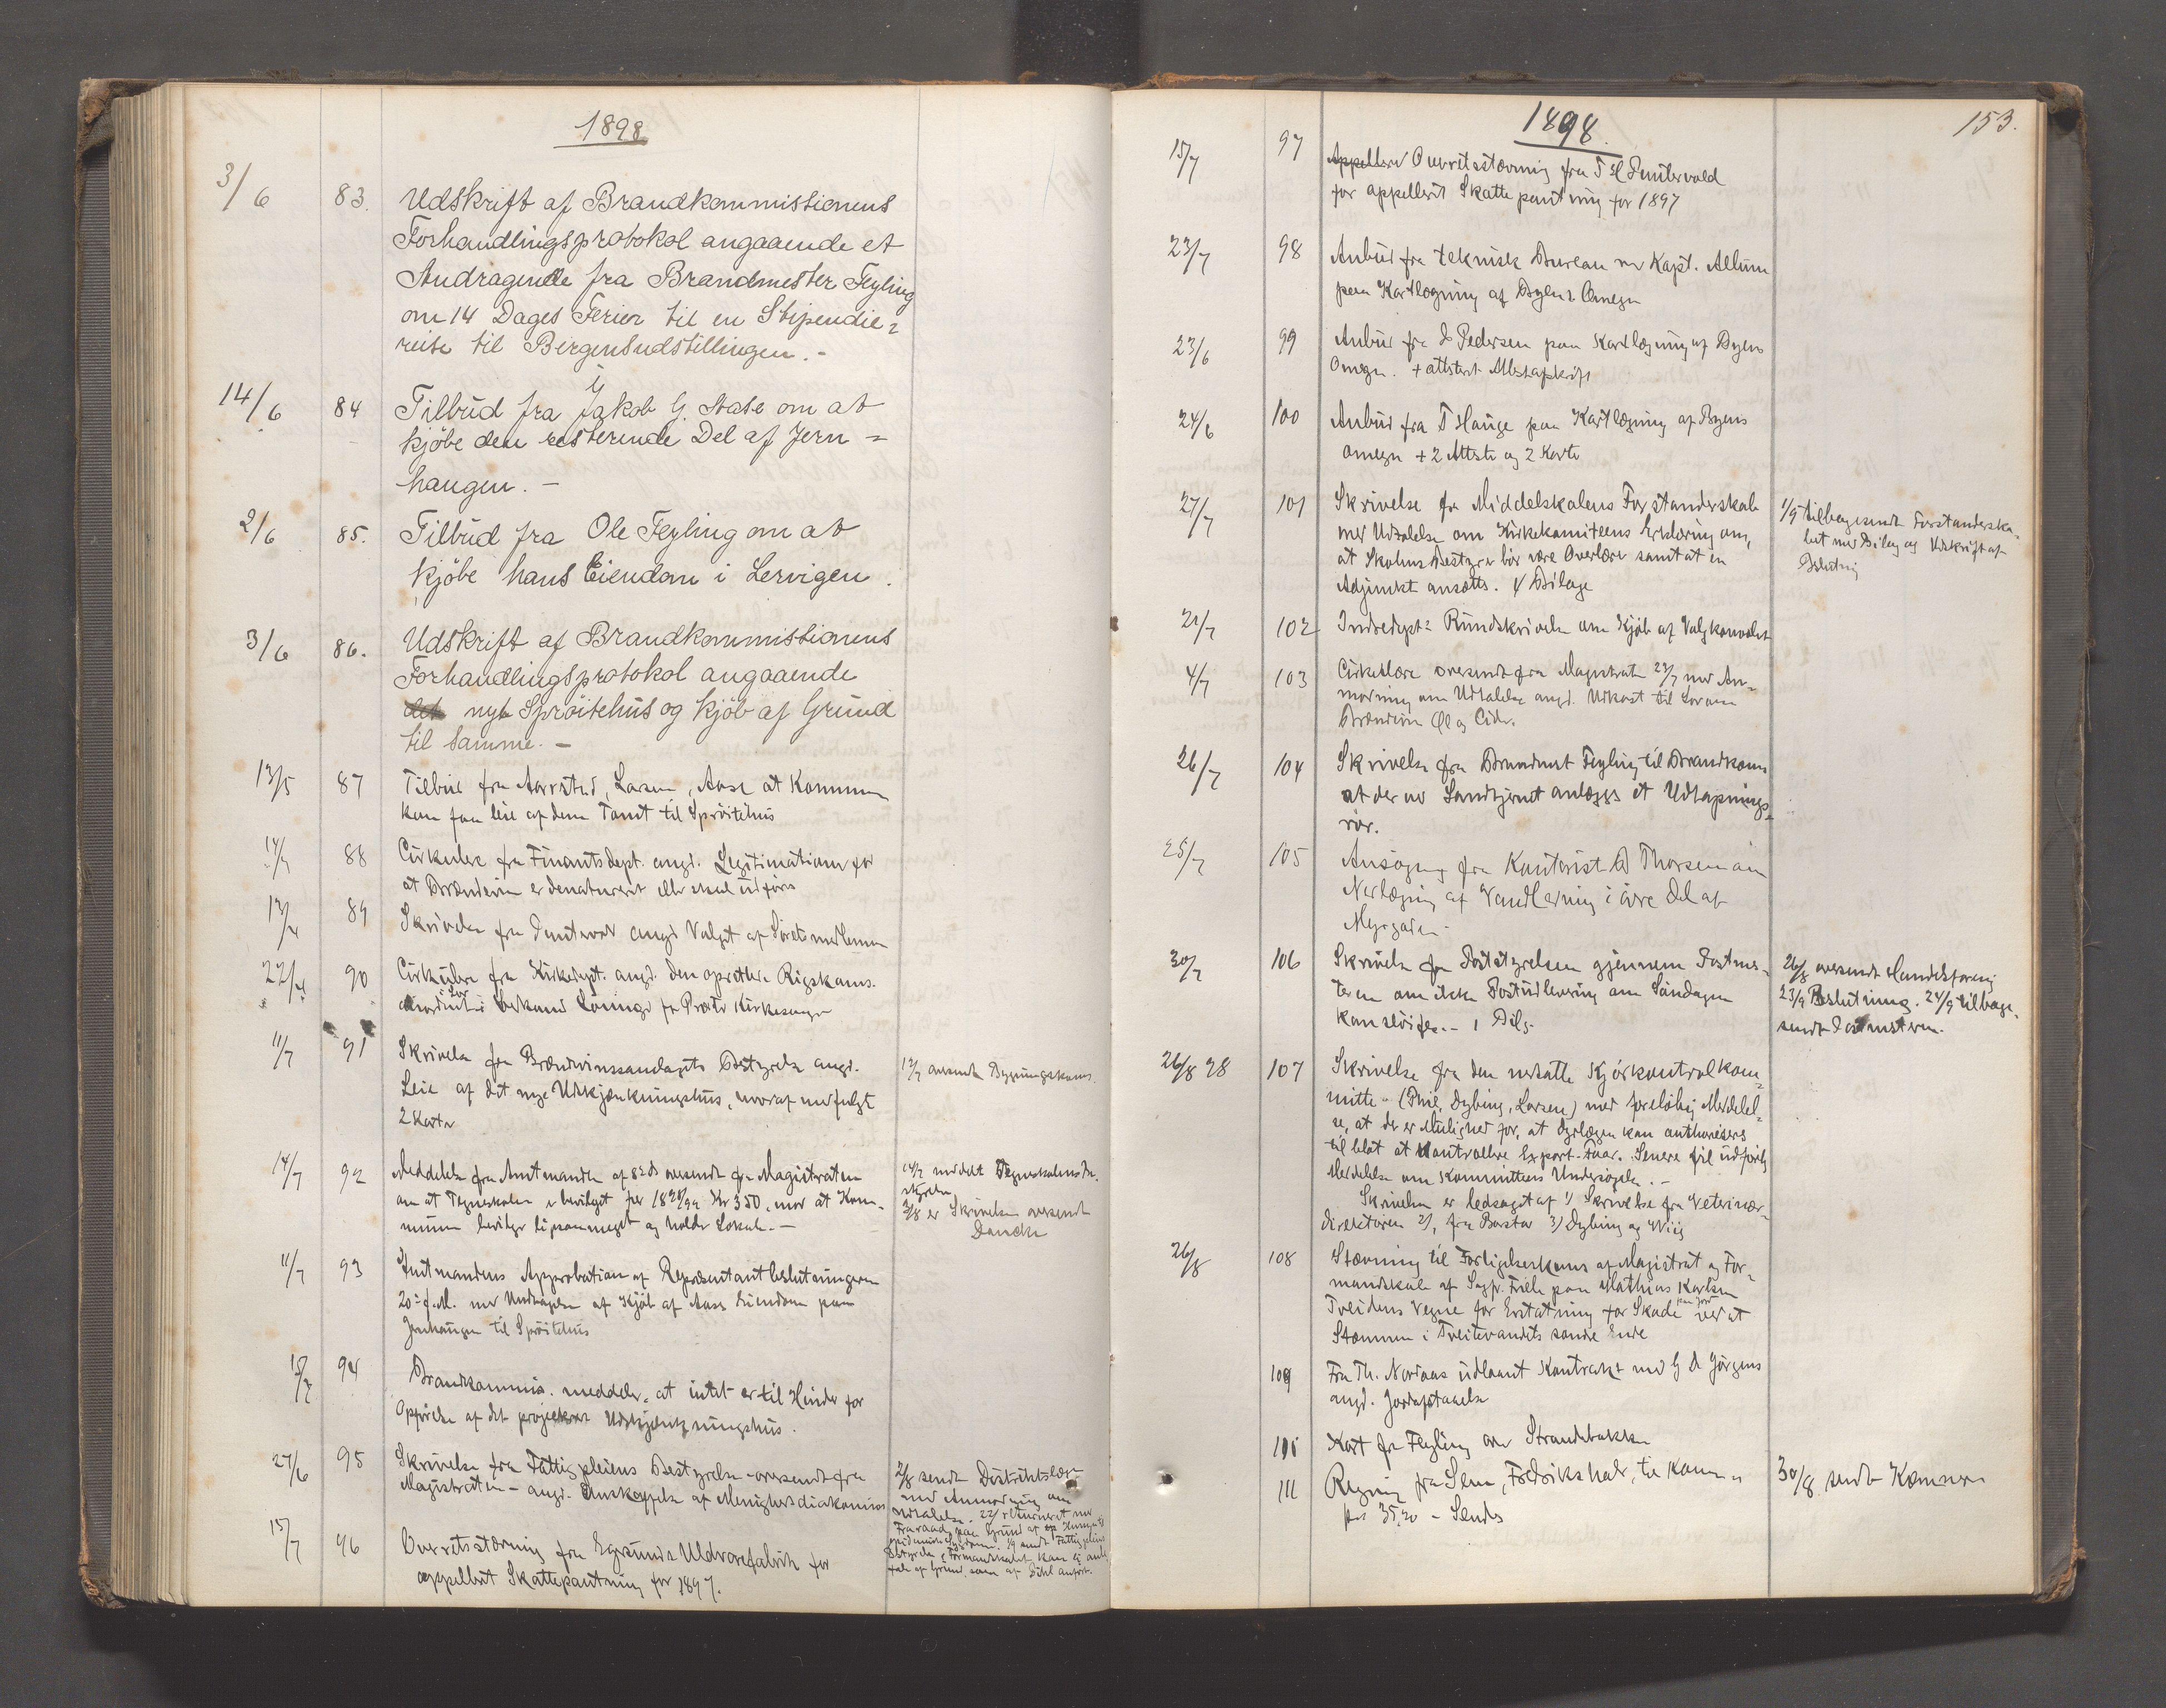 1898
3/6 83. Udskrift af Brandkommissionens
Forhandlingsprotokol angaaende et
Andragende fra Brandmester Feyling
om 14 Dages Ferier til en Stipendie=
reise til Bergensudstillingen.-
14/6 84 Tilbud fra Jakob G. Aase om at
kjöbe den resterende Del af Jern=
haugen.-
2/6 85. Tilbud fra Ole Feyling om at
kjöbe hans Eiendom i Lervigen.
3/6 86. Udskrift af Brandkommissionens
Forhandlingsprotokol angaaende
nyt Spröitehus og Kjöb af Grund
til samme.-
13/5 87 Tilbud fra Aarstad, Larsen, Aase at Kommunen
kan faa leie af dem Tomt til Spröitehus
88 Cirkulære fra Finantsdept. angd. Legitimationer for
at Brændevin er denatureret eller skal udföres
89 Skrivelse fra angd Valget af
22/4 90 Cirkulære fra Kirkedept. angd. den oprettede Rigskoms.
Lönnings for Kirkesanger
11/7 91 Skrivelse fra Brændevinssamlagets Bestyrelse angd.
Leie af det nye Udskjænkningshus, hvoraf medfulgte
2 Karter
12/7 oversendt Bygningskoms.
14/7 92 Meddelelse fra Amtmanden af 8de ds oversendt fra Magistraten
om at Tegneskolen er bevilget for 1898/99 Kr 350, mod at Kom-
munen bevilger ligesaameget og holder Lokale.-
14/7 meddelt Tegneskolens Be-
styrelse
2/8 er Skrivelsen oversendt
11/7 93 Amtmandens Approbation af Repræsentantbeslutningen
20de f.M. med Undtagelse af Kjöb af Aases Eiendom paa
Jernhaugen til Spröitehus
94 Brandkommis. meddeler, at intet er til Hinder for
Opförelse af det projekteret Udskjænkningshus.
27/6 95 Skrivelse fra Fattigpleiens Bestyrelse - oversendt fra
Magistraten - angd. Anskaffelse af Menighedsdiakonisse
2/8 sendt Distriktslægen
med Anmodning om
Udtalelse. returneret med
15/7 96 Overretsstævning fra Egersunds Uldvarefabrik for
appelleret Skattepantning for 1897.
1898.
153.
15/7 97 Overretsstævning fra T H Puntervold
for appelleret Skattepantning for 1897
23/7 98 Anbud fra teknisk Bureau ved Kapt. Allum
paa Kartlægning af Byens Omegn
23/6 99 Anbud fra S Pedersen paa Kartlægning af Byens
Omegn. + attesteret Attestafskrift
24/6 100 Anbud fra T Hauge paa Kartlægning af Byens
Omegn + 2 Attester og 2 Karter
27/7 101 Skrivelse fra Middelskolens Forstanderskab
med Udtalelse om Kirkekomiteens Erklæring om,
at Skolens Bestyrer bör være Overlærer samt at en
Adjunkt ansættes. 4 Bilage
1/9 tilbagesendt Forstanderska-
bet med Bilag og Udskrift af
Beslutning
21/7 102 Indredept: Rundskrivelse om Kjöb af Valgkonvolut
4/7 103 Cirkulære oversendt fra Magistraten 23/7 med An-
modning om Udtalelse angd. Udkast til Lov om
Brændevin Öl og Cider.
26/7 104 Skrivelse fra Brandmest Feyling til Brandkoms
at der ved Sandtjernet anlægges et Udtapnings-
rör.
25/7 105 Ansögning fra Kontorist A Thorsen om
Nedlægning af Vandledning i övre Del af
Myrgaden.
30/7 106 Skrivelse fra Poststyrelsen gjennem Postmes-
teren om ikke Postudlevering om Söndagen
kan slöifes.- 1 Bilg.
26/8 oversendt Handelsforening
23/9 Beslutning. 24/9 tilbage-
sendt Postmesteren.
26/8 98 107 Skrivelse fra den nedsatte Kjödkontrolkom-
mitte (Thiel, Dybing, Larsen) med foreløbig Meddelel-
se, at der er Mulighed for, at Dyrlægen kan authoriseres
til blot at kontrollere Export-Faar. Senere vil udförlig
Meddelelse om Kommitteens Undersögelse.-
Skrivelsen er ledsaget af 1) Skrivelse fra Veterinær-
direktören 2) fra Barstad 3) Dybing og Wiig
26/8 108 Stævning til Forligelseskoms af Magistrat og For-
mandskab af Sagf. Friele paa Mathias Karlsen
Tveidens Vegne for Erstatning for Skade paa Jord ved at
Stemmen i Tveitevandets söndre Ende
109 Fra Th. Nordaas udlaant Kontrakt med G A Jörgens
angd. Jordafstaaelse
110 Kart fra Feyling over Strandebakken
111 Regning fra Fredrikshald, til Kommunen
paa 35,20 - Sendes
30/8 sendt Kæmneren